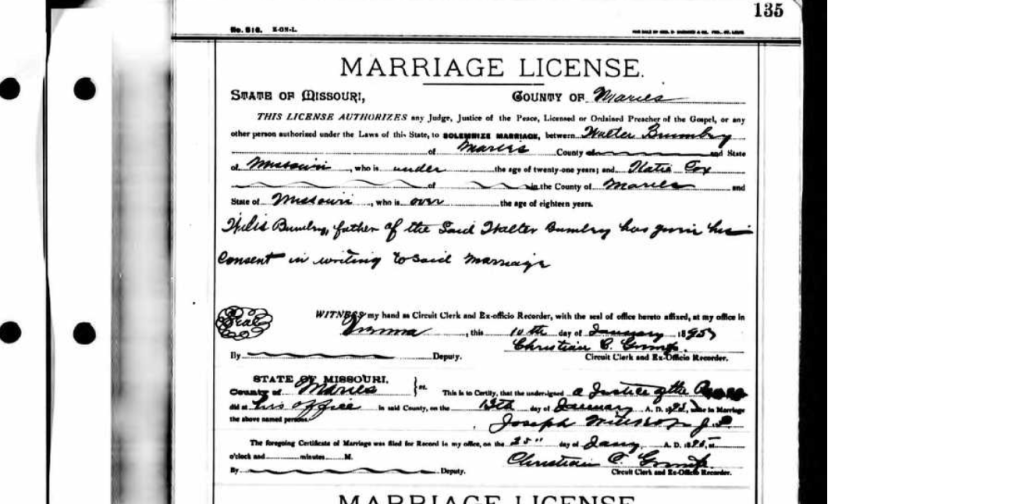 135
No. 516.
MARRIAGE LICENSE.
STATE OF MISSOURI, COUNTY OF Maries
THIS LICENSE AUTHORIZES any Judge, Justice of the Peace, Licensed or Ordained Preacher of the Gospel, or any
other person authorized under the Laws of this State, to SOLEMNIZE MARRIAGE, between Walter Bumbry
of Maries County and State
of Missouri, who is under the age of twenty-one years; and Katie Cox
of in the County of Maries and
State of Missouri, who is over the age of eighteen years.
Bumbry, father of the Said Walter Bumbry has his
Consent in writing to Said Marriage
Seal
WITNESS my hand as Circuit Clerk and Ex-officio Recorder, with the seal of office hereto affixed, at my office in
Vienna, this 10th day of January 1895
Christian C.
By Deputy. Circuit Clerk and Ex-Officio Recorder.
STATE OF MISSOURI,
County of Maries ss. This is to Certify, that the undersigned a Justice of the
did at his office in said County, on the 13th day of January A. D. 1895, unite in Marriage
the above named persons. Joseph J.P.
The foregoing Certificate of Marriage was filed for Record in my office, on the 25" day of Jany A. D. 1895, at
o'clock and minutes M. Christian C.
By Deputy. Circuit Clerk and Ex-Officio Recorder.
MARRIAGE LICENSE